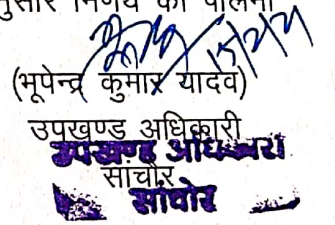 नुसार निर्णय की पालना
(भूपेन्द्र कुमार यादव)
उपखण्ड अधिकारी
उपखण्ड अधिकारी
सांचौर
सांचोर